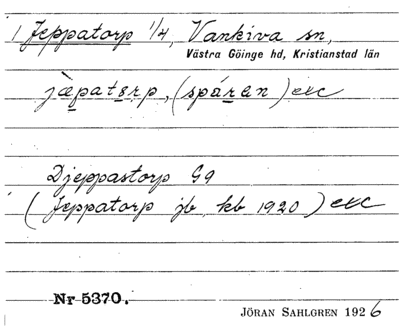 1 Jeppatorp 1/4, Vankiva sn,
Västra Göinge hd, Kristianstad län
jæpatərp, (spáran) exc
Djeppastorp G9
(Jeppatorp jb, kb 1920) exc
Nr 5370.
JÖRAN SAHLGREN 1926